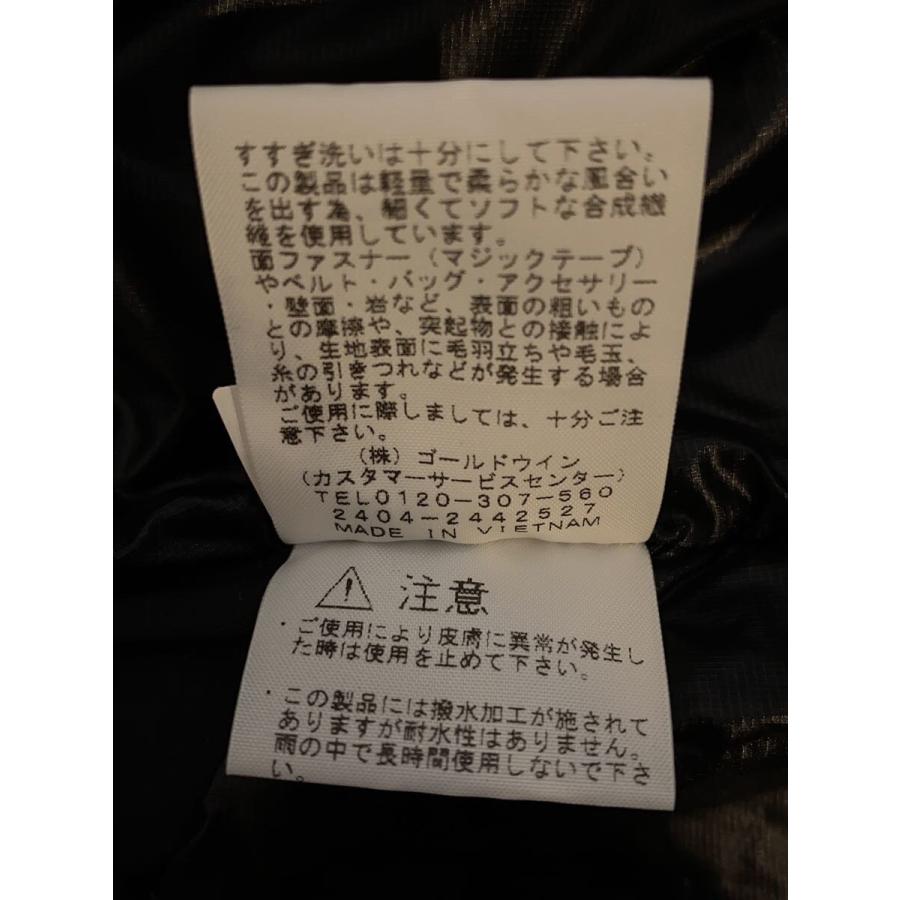 すすぎ洗いは十分にして下さい。
この製品は軽量で柔らかな風合い
を出す為、細くてソフトな合成繊
維を使用しています。
面ファスナー（マジックテープ）
やベルト・バッグ・アクセサリー
・壁面・岩など、表面の粗いもの
との摩擦や、突起物との接触によ
り、生地表面に毛羽立ちや毛玉、
糸の引きつれなどが発生する場合
があります。
ご使用に際しましては、十分ご注
意下さい。
（株）ゴールドウイン
（カスタマーサービスセンター）
TEL0120-307-560
2404-2442527
MADE IN VIETNAM
注意
・ご使用により皮膚に異常が発生し
た時は使用を止めて下さい。
・この製品には撥水加工が施されて
ありますが耐水性はありません。
雨の中で長時間使用しないで下さ
い。